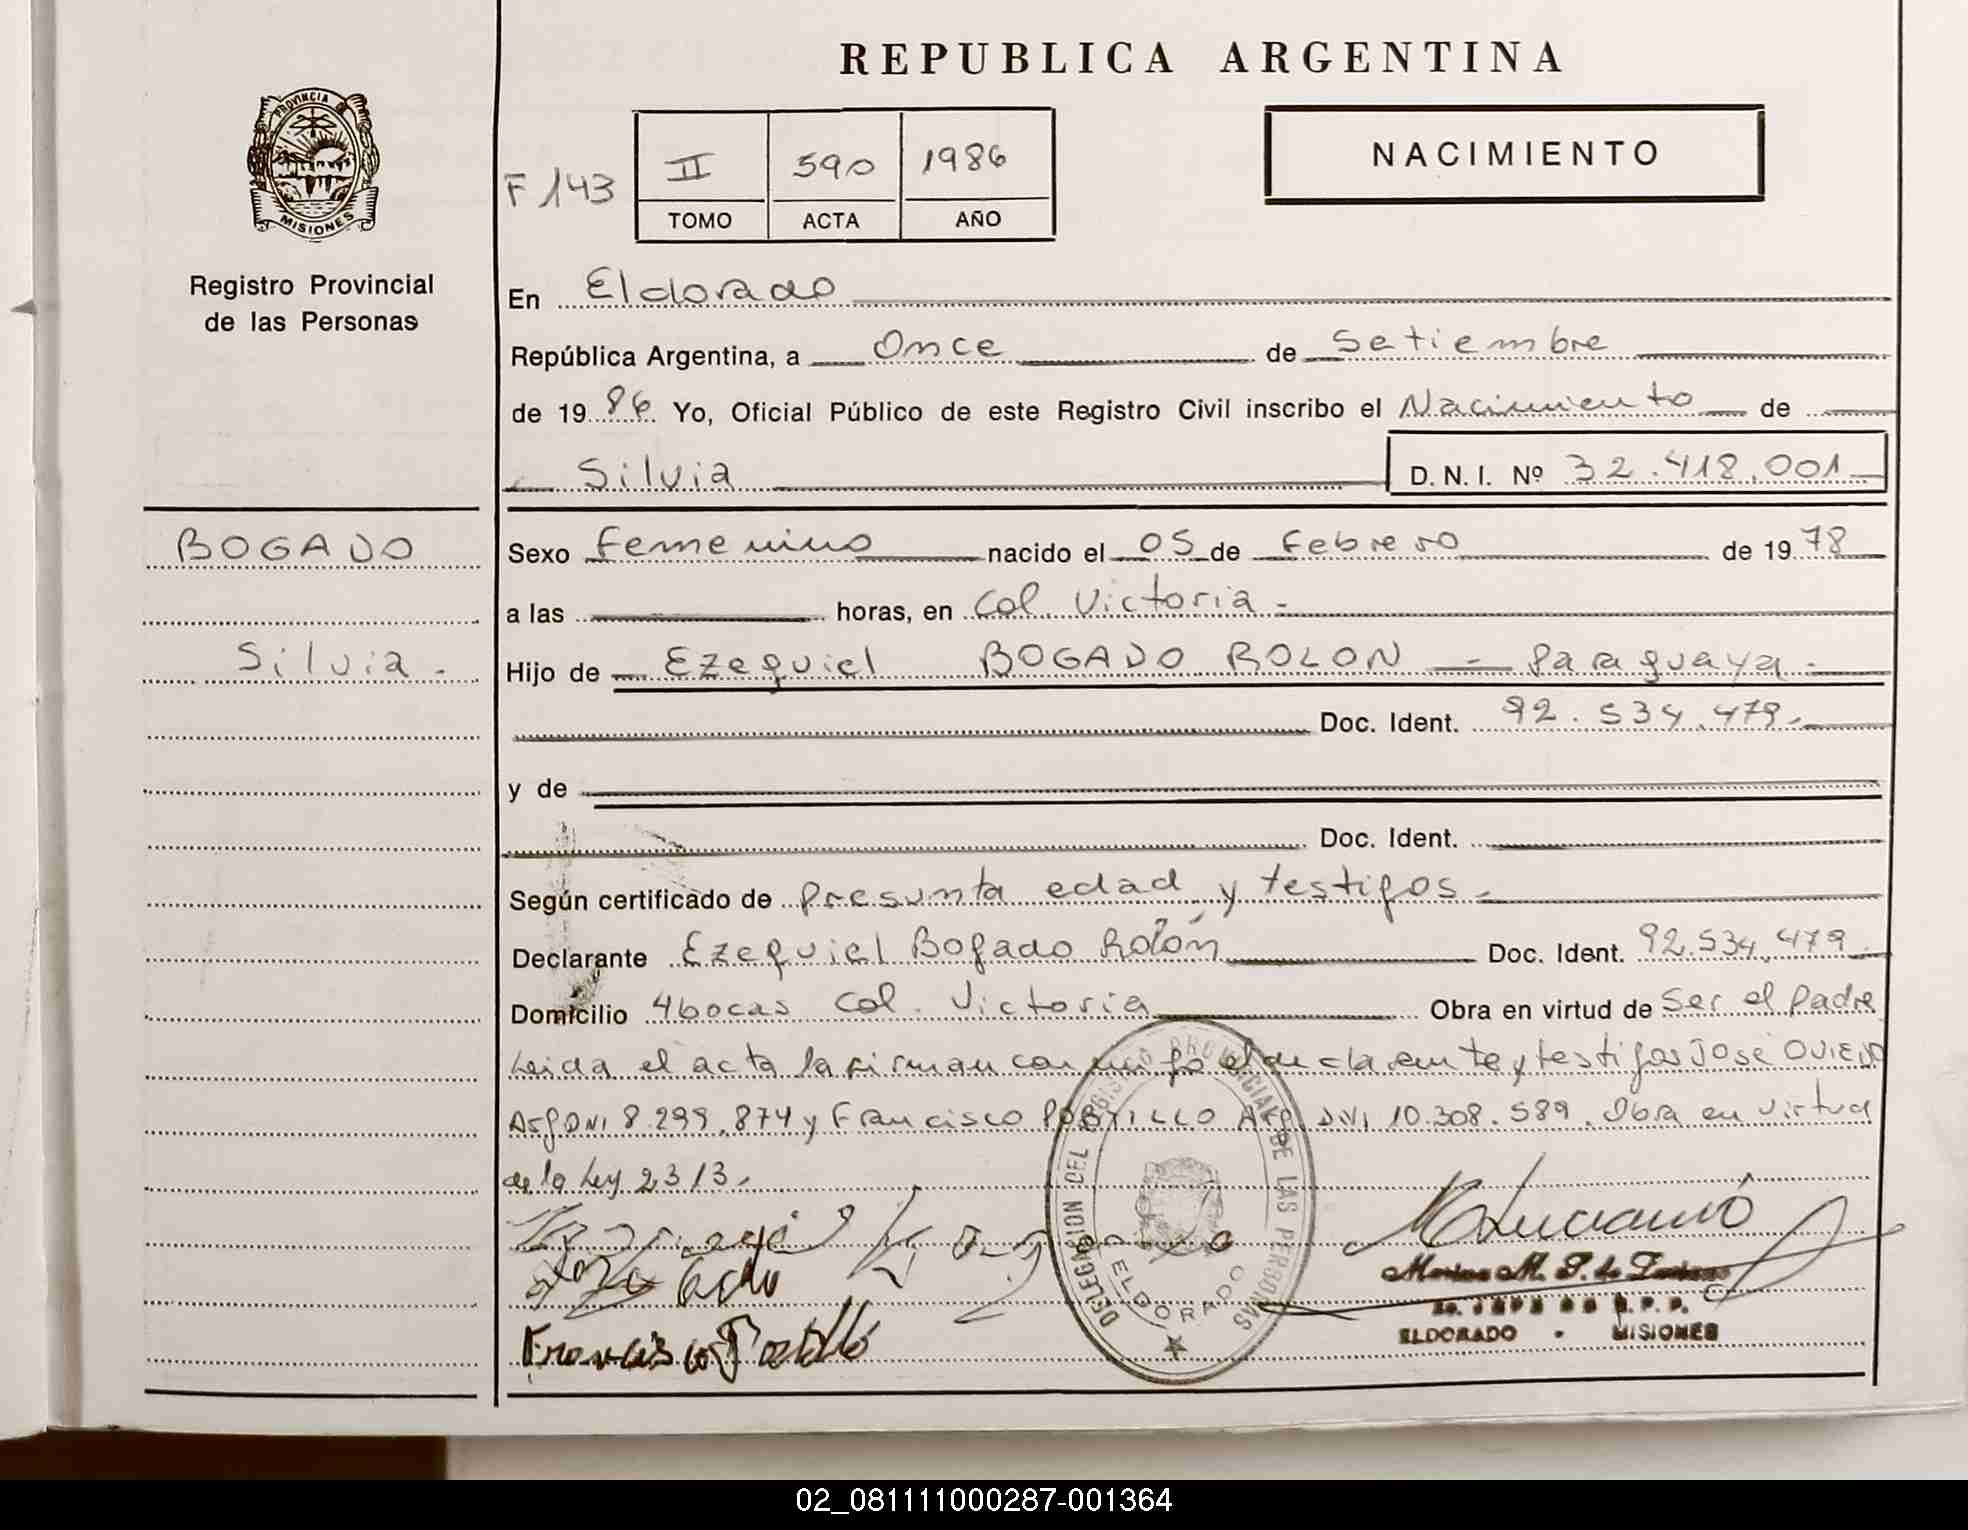 REPUBLICA ARGENTINA
PROVINCIA DE MISIONES
Registro Provincial
de las Personas
F 143
II 590 1986
TOMO ACTA AÑO
NACIMIENTO
En Eldorado
República Argentina, a Once de Setiembre
de 1986 Yo, Oficial Público de este Registro Civil inscribo el Nacimiento de
Silvia D.N.I. Nº 32.418.001
BOGADO
Silvia.
Sexo Femenino nacido el 05 de Febrero de 1978
a las horas, en Col. Victoria
Hijo de Ezequiel BOGADO ROLON - Paraguaya.
Doc. Ident. 92.534.479.
y de
Doc. Ident.
Según certificado de Presunta edad y testigos.
Declarante Ezequiel Bogado Rolón Doc. Ident. 92.534.479
Domicilio 4 bocas Col. Victoria Obra en virtud de Ser el Padre
Leida el acta la firman conmigo el declarante y testigos José OVIEDO
Arg DNI 8.299.874 y Francisco PORTILLO Arg. DNI 10.308.589. Obra en virtud
de la Ley 2313.
Francisco Portillo
DELEGACION DEL REGISTRO PROVINCIAL DE LAS PERSONAS
ELDORADO
ELDORADO - MISIONES
02_081111000287-001364